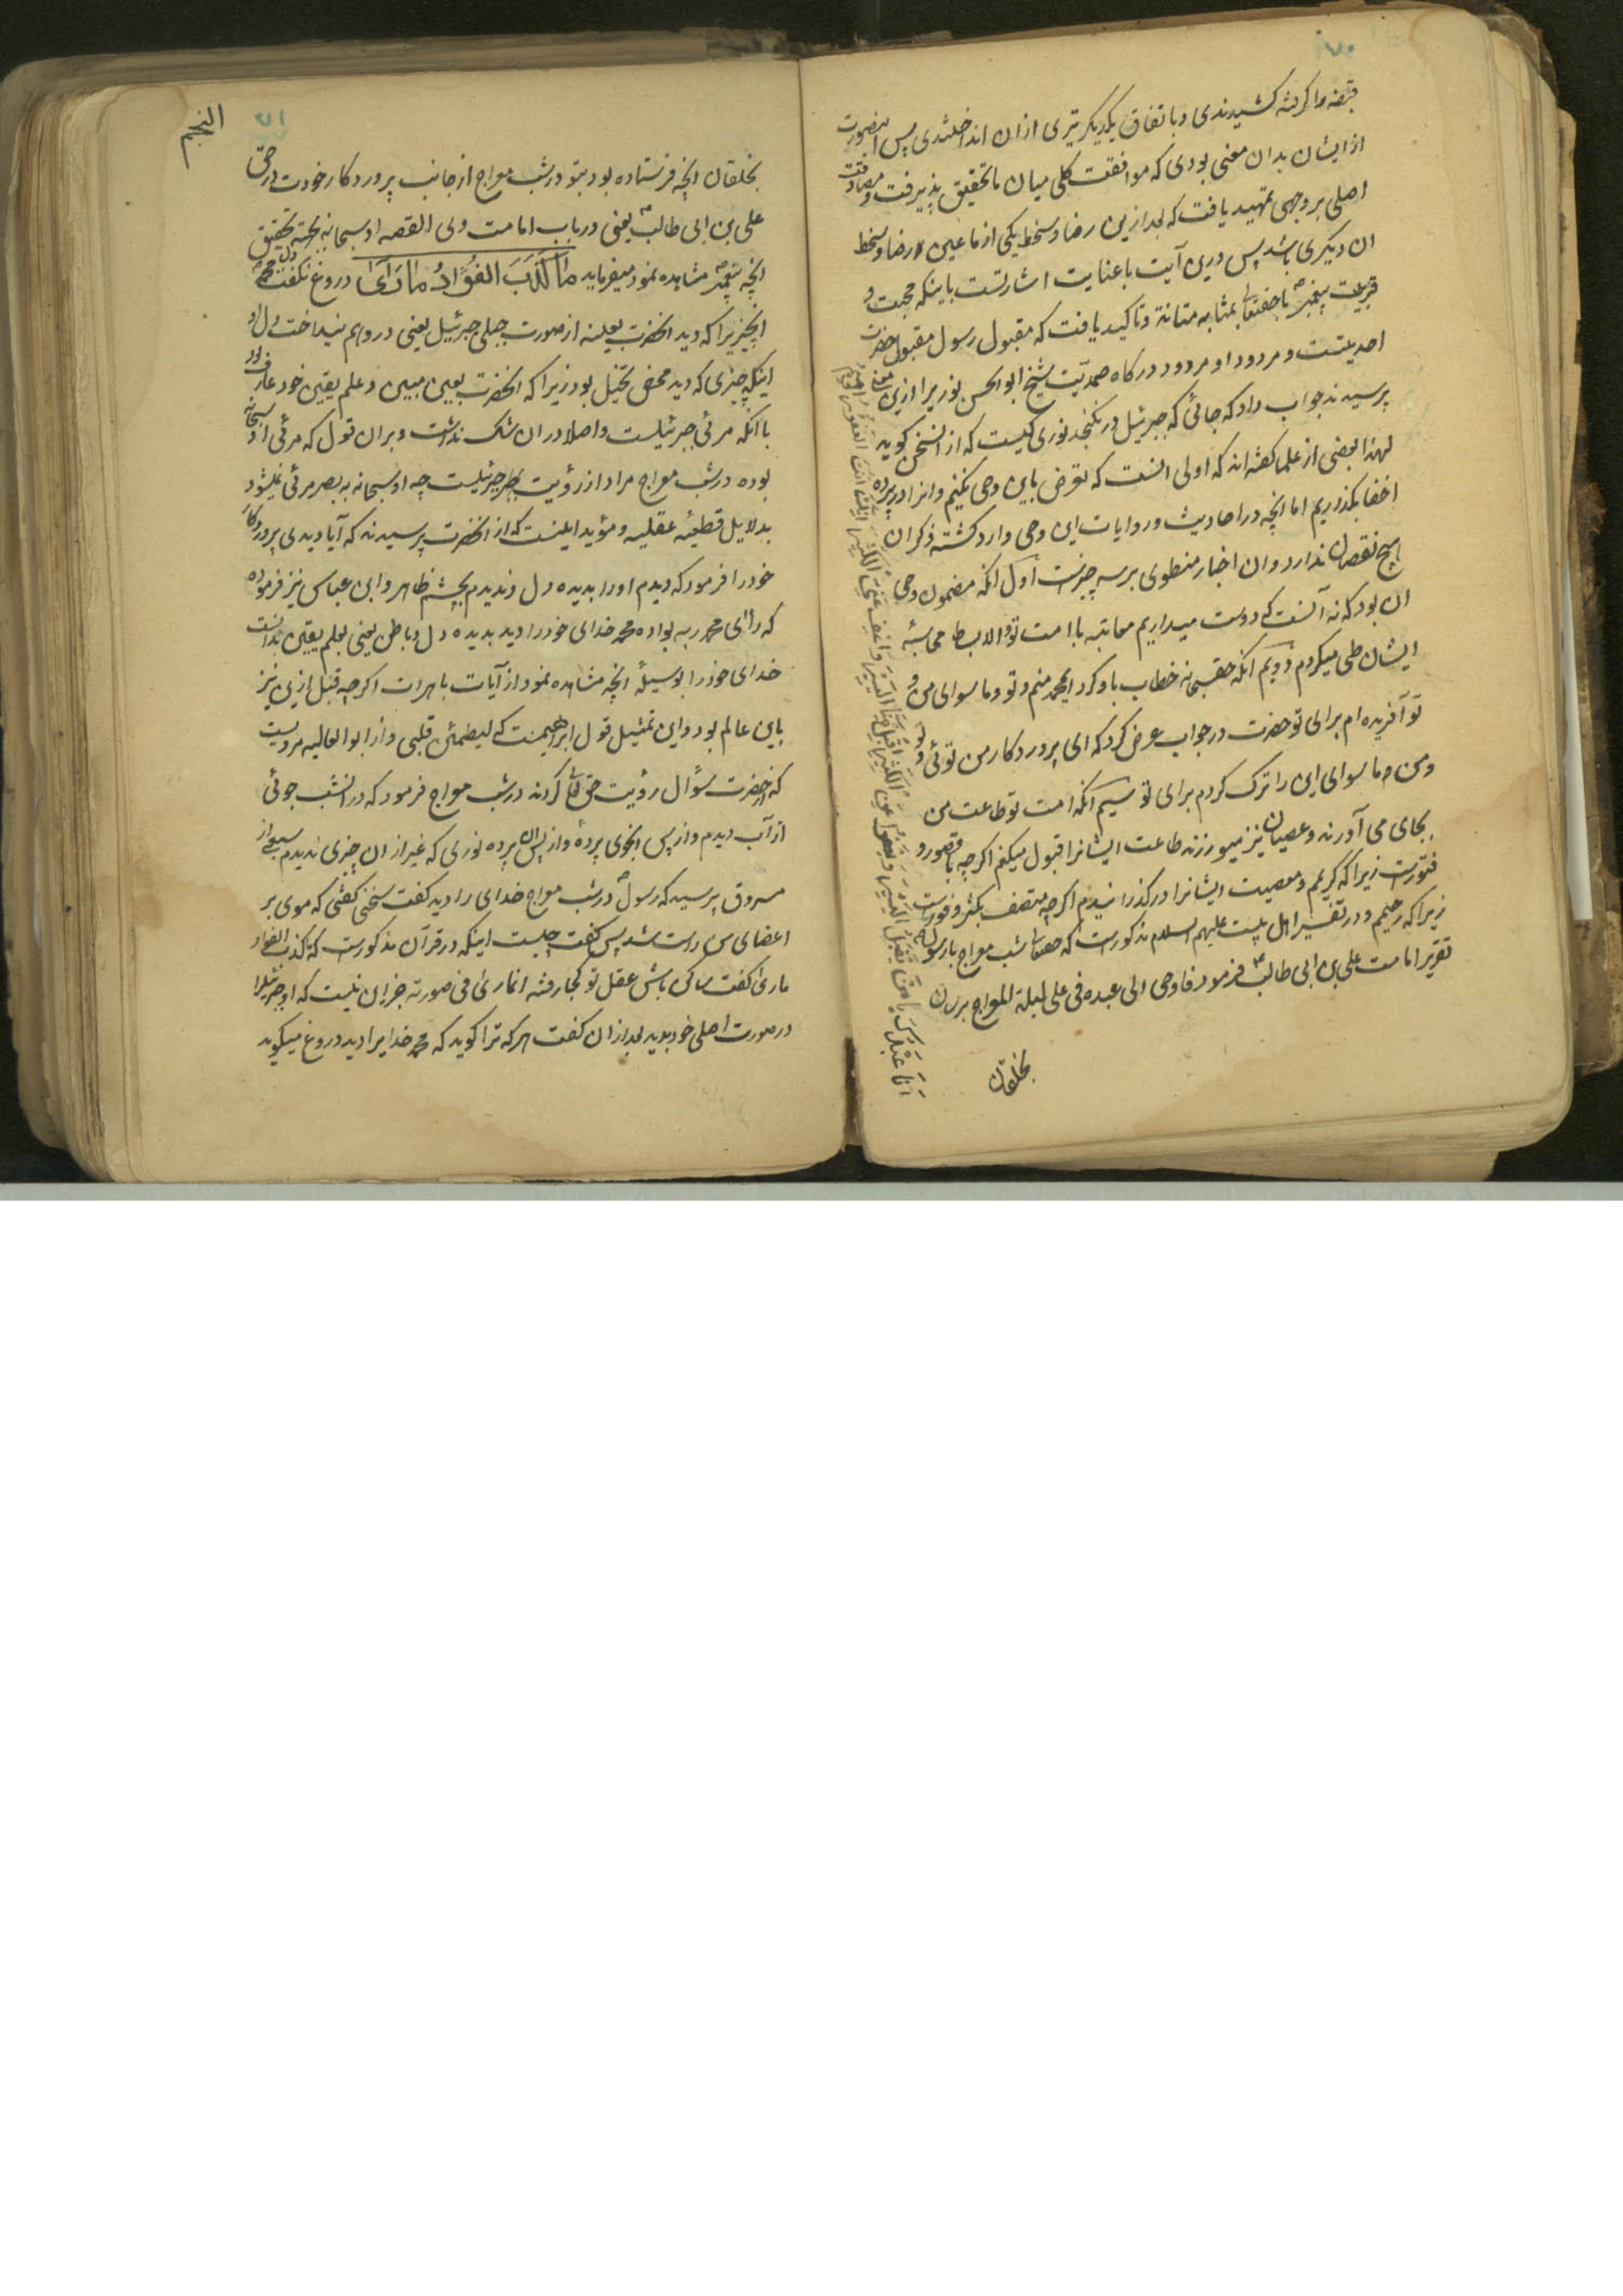 ۷۰
قبضه را گرفته کشیدندی و با تفاق یکدیگر تیری ازان انداختندی پس اینصورت
از ایشان بدان معنی بودی که موافقت کلی میان ما تحقیق پذیرفت و مصادقت
اصلی بر وجهی تمهید یافت که بعد ازین رضا و سخط یکی از ما عین رضا و سخط
ان دیگری باشد پس درین آیت با عنایت اشارتست باینکه محبت و
قربت پیغمبر با حقتعالی بمثابه متانة و تاکید یافت که مقبول رسول مقبول حضرت
احدیتست و مردود او مردود درکاه صمدیت شیخ ابو الحسن نوریرا ازین معنی
پرسیدند جواب داد که جائی که جبرئیل در نکنجد نوری کیست که از انسخن کوید
لهذا بعضی از علما کفته اند که اولی انست که تعرض باین وحی نکنیم و انرا در پرده
اخفا بکذاریم اما انچه در احادیث و روایات این وحی وارد کشته ذکر ان
هیچ نقصان ندارد و ان اخبار منطوی بر سه چیزست اول انکه مضمون وحی
ان بود که نه آنست که دوست میداریم معاتبه با امت تو والا بساط محاسبه
ایشان طی میکردم دویم انکه حقسبحانه خطاب باو کرد ایمحمد منم و تو و ما سوای من و
تو آفریده ام برای تو حضرت در جواب عرض کرد که ای پروردکار من توئی و
ومن و ما سوای این را ترک کردم برای تو سیم انکه امت تو طاعت من
بجای می آورند و عصیان نیز میورزند طاعت ایشانرا قبول میکنم اکرچه با قصور و
فتورست زیرا که کریمم و معصیت ایشانرا در کذرانیدم اکرچه متصف بکثر و فورست
زیرا که رحیمم و در تفسیر اهل بیت علیهم السلام مذکورست که حقتعالی شب معراج با رسول
تقریر امامت علی بن ابی طالب فرمود فاوحی الی عبده فی علی لیلة المعراج برسان
بخلقان
۷۱
النجم
بخلقان انچه فرستاده بود بتو در شب معراج از جانب پروردکار خودت در حق
علی بن ابی طالب یعنی در باب امامت ولی القصه او سبحانه بجهته تحقیق
انچه پیغمبر مشاهده نمود میفرماید مَا كَذَبَ الفُؤَادُ مَا رَأَىٰ دروغ نکفت دل محمد
انچیزیرا که دید انحضرت بعینه از صورت جبلی جبرئیل یعنی در وهم نینداخت دل او
اینکه چیزی که دید محض تخیل بود زیرا که انحضرت بعین مبین و علم یقین خود عارف بود
با انکه مرئی جبرئیلست و اصلا در ان شک نداشت و بر ان قول که مرئی او سبحانه
بوده در شب معراج مراد از رؤیت جبرئیلست چه او سبحانه به بصر مرئی نمیشود
بدلایل قطیعه عقلیه و مؤید اینست که از انحضرت پرسیدند که آیا دیدی پروردکار
خود را فرمود که دیدم اورا بدیده دل و ندیدم بچشم ظاهر و ابن عباس نیز فرموده
که رای محمد ربه بفواده محمد خدای خود را دید بدیده دل و باطن یعنی بعلم یقین بدانست
خدای خود را بوسیلهٔ انچه مشاهده نمود از آیات باهرات اکرچه قبل ازین نیز
باین عالم بود و این تمثیل قول ابراهیمست که لیطمئن قلبی و از ابو العالیه مرویست
که از حضرت سؤال رؤیت حق تعالی کردند در شب معراج فرمود که در انشب جوئی
از آب دیدم و از پس انجوی پردهٔ و از پس ان پرده نوری که غیر از ان چیزی ندیدم
مسروق پرسید که رسول در شب معراج خدای را دید کفت سخنی کفتی که موی بر
اعضای من راست شد پس کفت چیست اینکه در قرآن مذکورست که ما کذب الفواد
ما رای کفت ساکن باش عقل تو کجا رفته انما رای فی صورته جز این نیست که او جبرئیلرا
در صورت اصلی خود بدید بعد از ان کفت هر که ترا کوید که محمد خدایرا دید دروغ میکوید